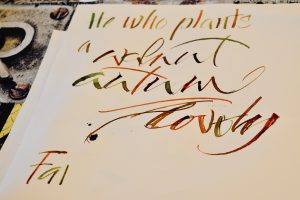 He who plants
a walnut
autumn
Lovely
Fal